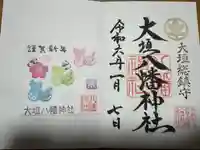 大垣総鎮守
大垣八幡神社
令和六年一月七日
謹賀新年
大垣八幡神社